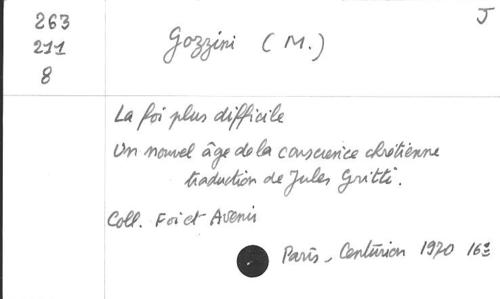 J
263
211
8
Gozzini (M.)
La foi plus difficile
Un nouvel âge de la conscience chrétienne
traduction de Jules Gritti.
Coll. Foi et Avenir
Paris, Centurion 1970 16º